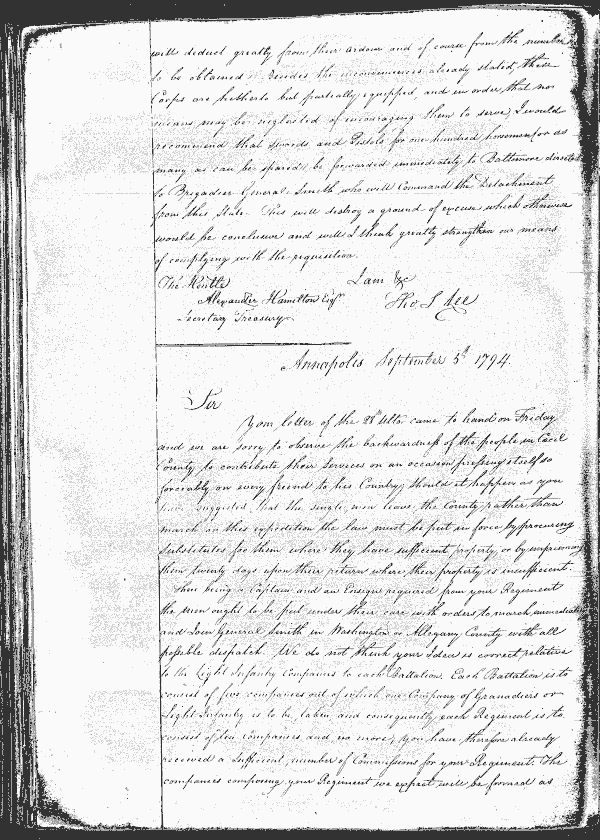 will deduct greatly from their ardour and of course from the number
to be obtained. Besides the inconveniences already stated, these
Corps are hitherto but partially equipped, and in order that no
means may be neglected of incouraging them to serve, I would
recommend that Swords and Pistols for one hundred horsemen or as
many as can be spared be forwarded immediately to Baltimore directed
to Brigadier General Smith who will Command the Detachment
from this State. This will destroy a ground of excuse which otherwise
would be conclusive and will I think greatly strengthen our means
of complying with the requisition.
I am &c
The Honble
Alexander Hamilton Esqr
Tho. S Lee
Secretary Treasury
Annapolis September 5th 1794.
Sir
Your letter of the 28th Ulto. came to hand on Friday
and we are sorry to observe the backwardness of the people in Cecil
County to contribute their Services on an occasion pressing itself so
forceably on every friend to his Country, should it happen as you
have suggested that the single men leave the County rather than
march on this expedition the law must be put in force by procuring
substitutes for them where they have sufficient property, or by imprisoning
them twenty days upon their return where their property is insufficient.
There being a Captain and an Ensign required from your Regiment
the men ought to be put under their care with orders to march immediately
and Join General Smith in Washington or Allegany County with all
possible despatch. We do not think your Idea is correct relative
to the Light Infantry Companies to each Battalion. Each Battalion is to
consist of five companies out of which one Company of Granadiers or
Light Infantry is to be taken and consequently each Regiment is to
consist of ten companies and no more, you have therefore already
received a Sufficient number of Commissions for your Regiment. The
companies composing your Regiment we expect will be forward as